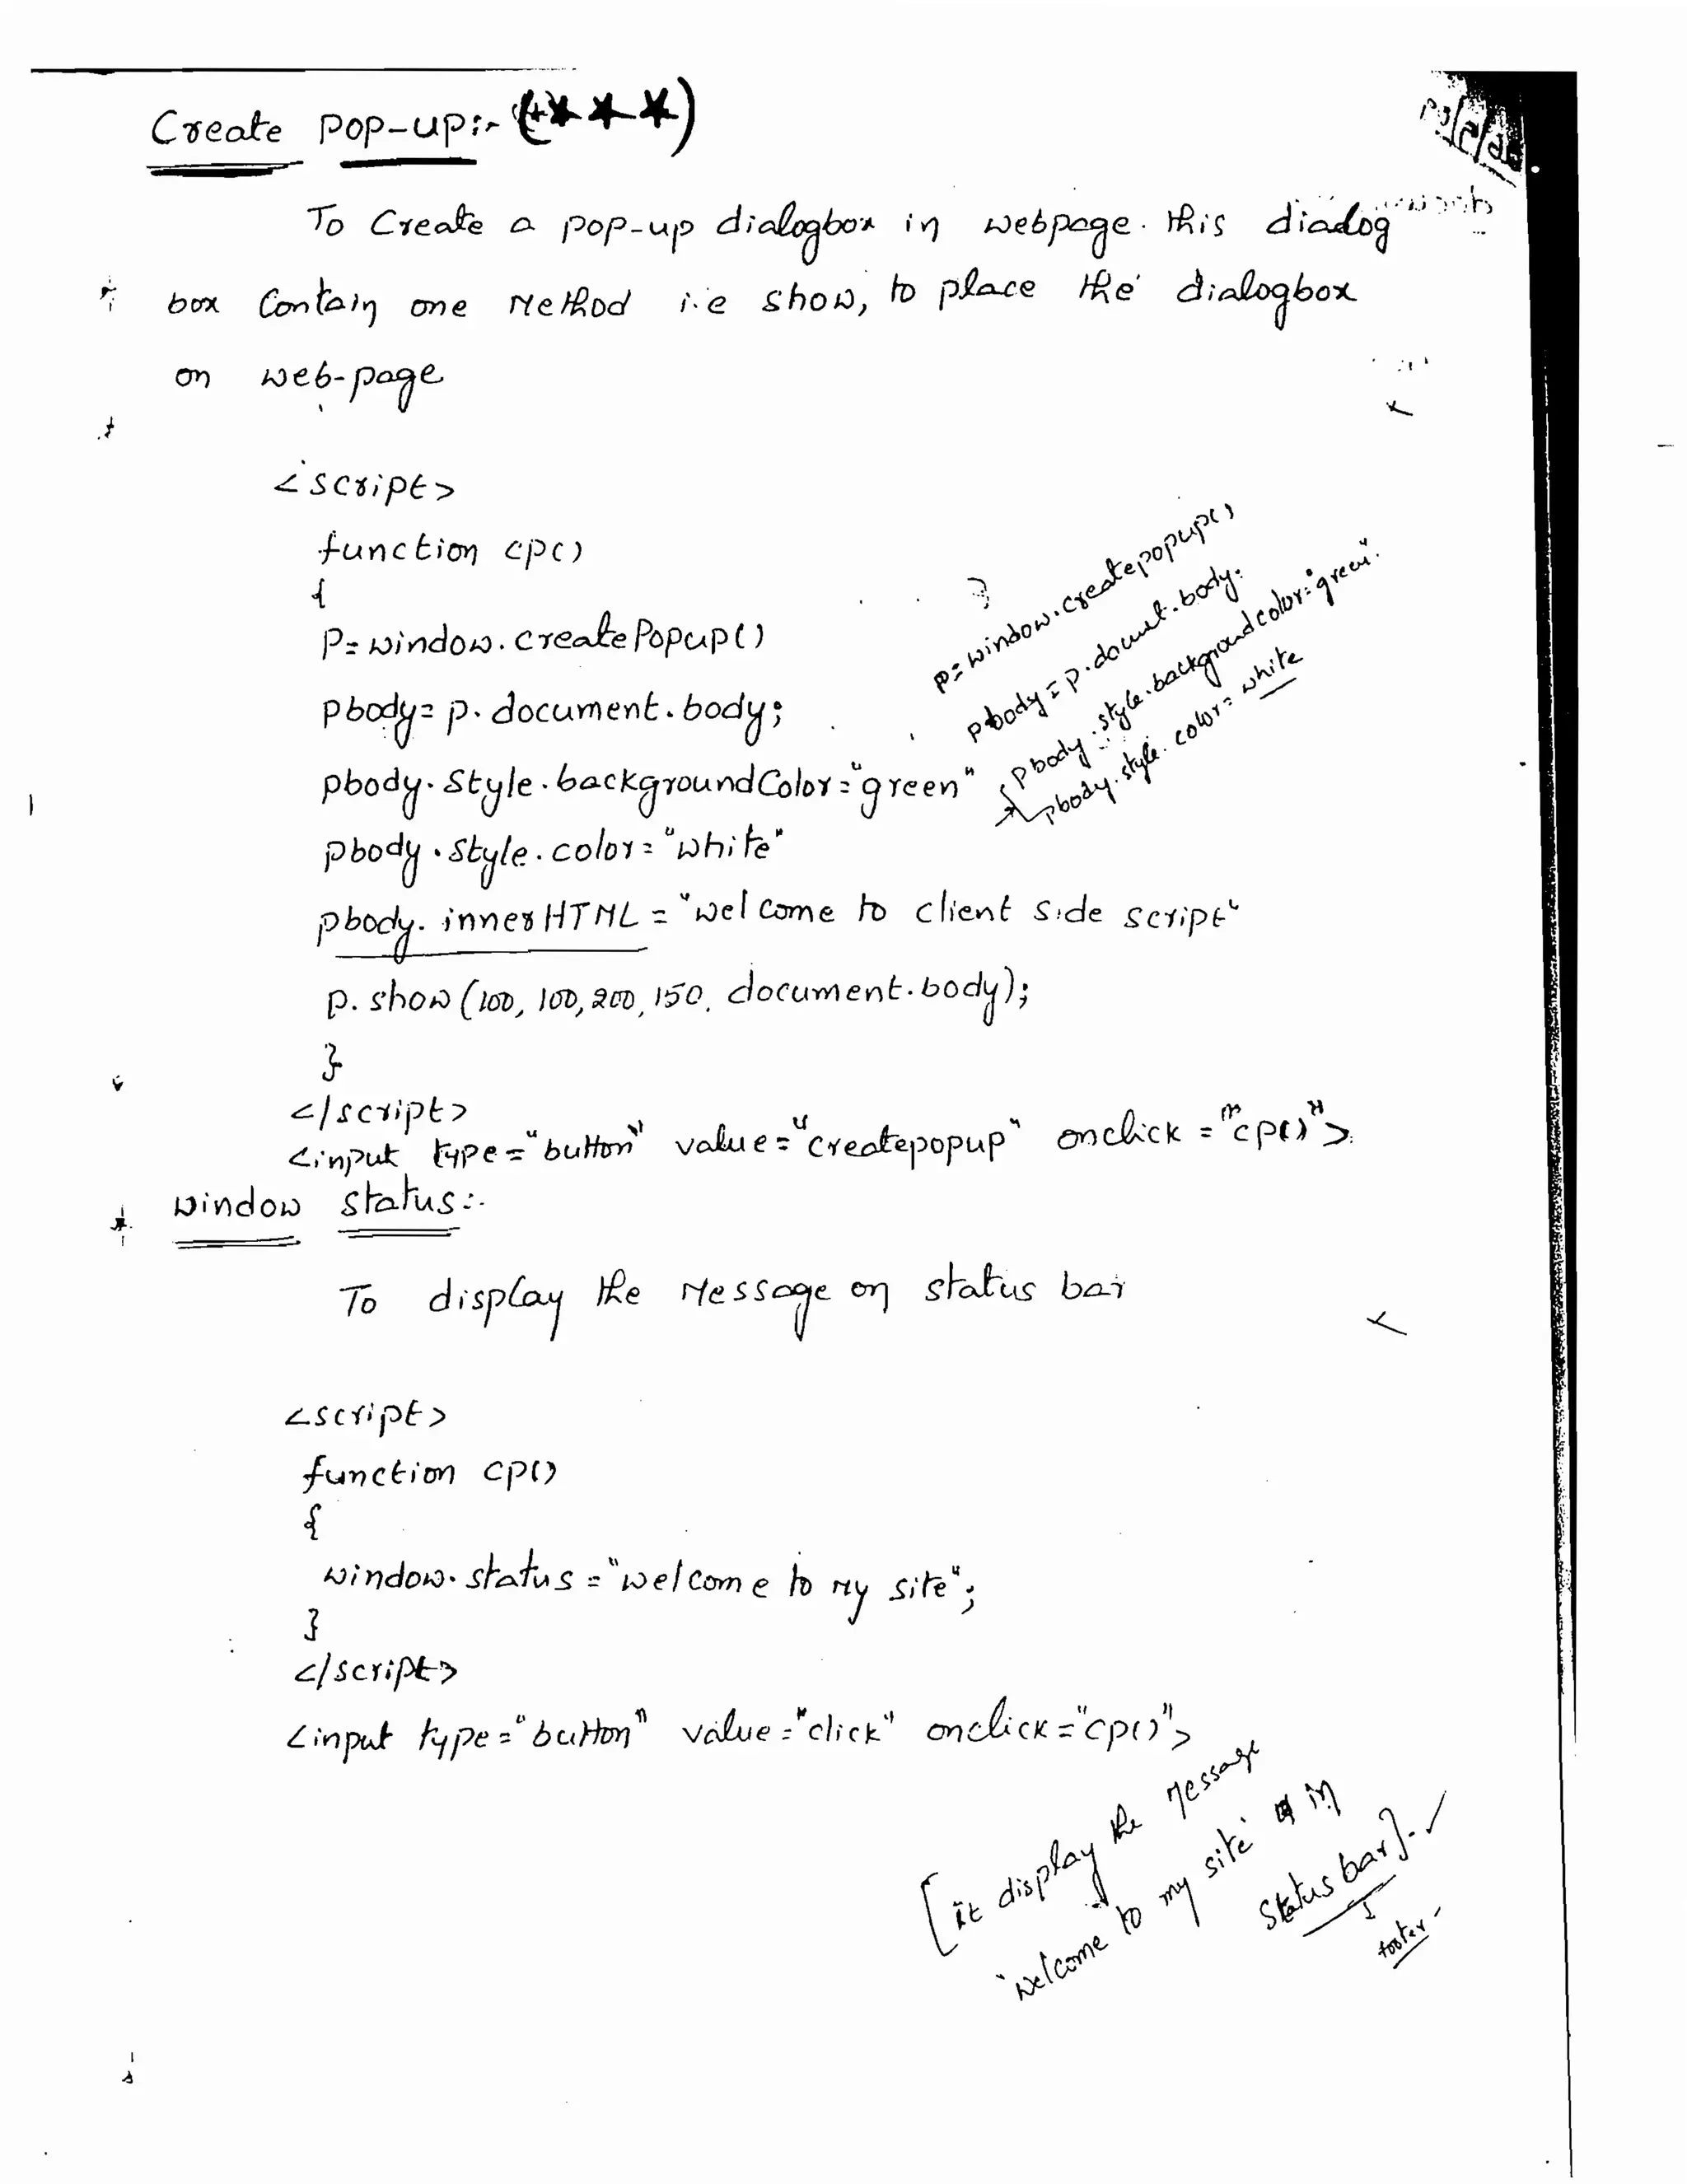 Create Pop-up:- (***)
To Create a pop-up dialogbox in webpage. this dialog
box Contain one Method i.e show, to place the dialogbox
on web-page
<script>
function cp()
{
P=window.createPopup()
pbody=p.document.body;
pbody.style.backgroundColor="green"
pbody.style.color="white"
pbody.innerHTML="welcome to client side script"
p.show(100, 100, 200, 150, document.body);
}
</script>
<input type="button" value="createpopup" onclick="cp()">
p=window.createpopup()
pbody=p.documet.body.
pbody.style.backgroundcolor="green".
pbody.style.color=white
window status:-
To display the Message on status bar
<script>
function cp()
{
window.status="welcome to my site";
}
</script>
<input type="button" value="click" onclick="cp()">
[it display the Message
"welcome to my site" in
Status bar].
footer